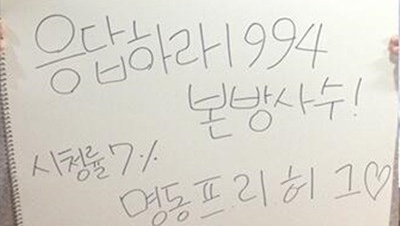 응답하라1994
본방사수!
시청률7%
명동프리허그♡